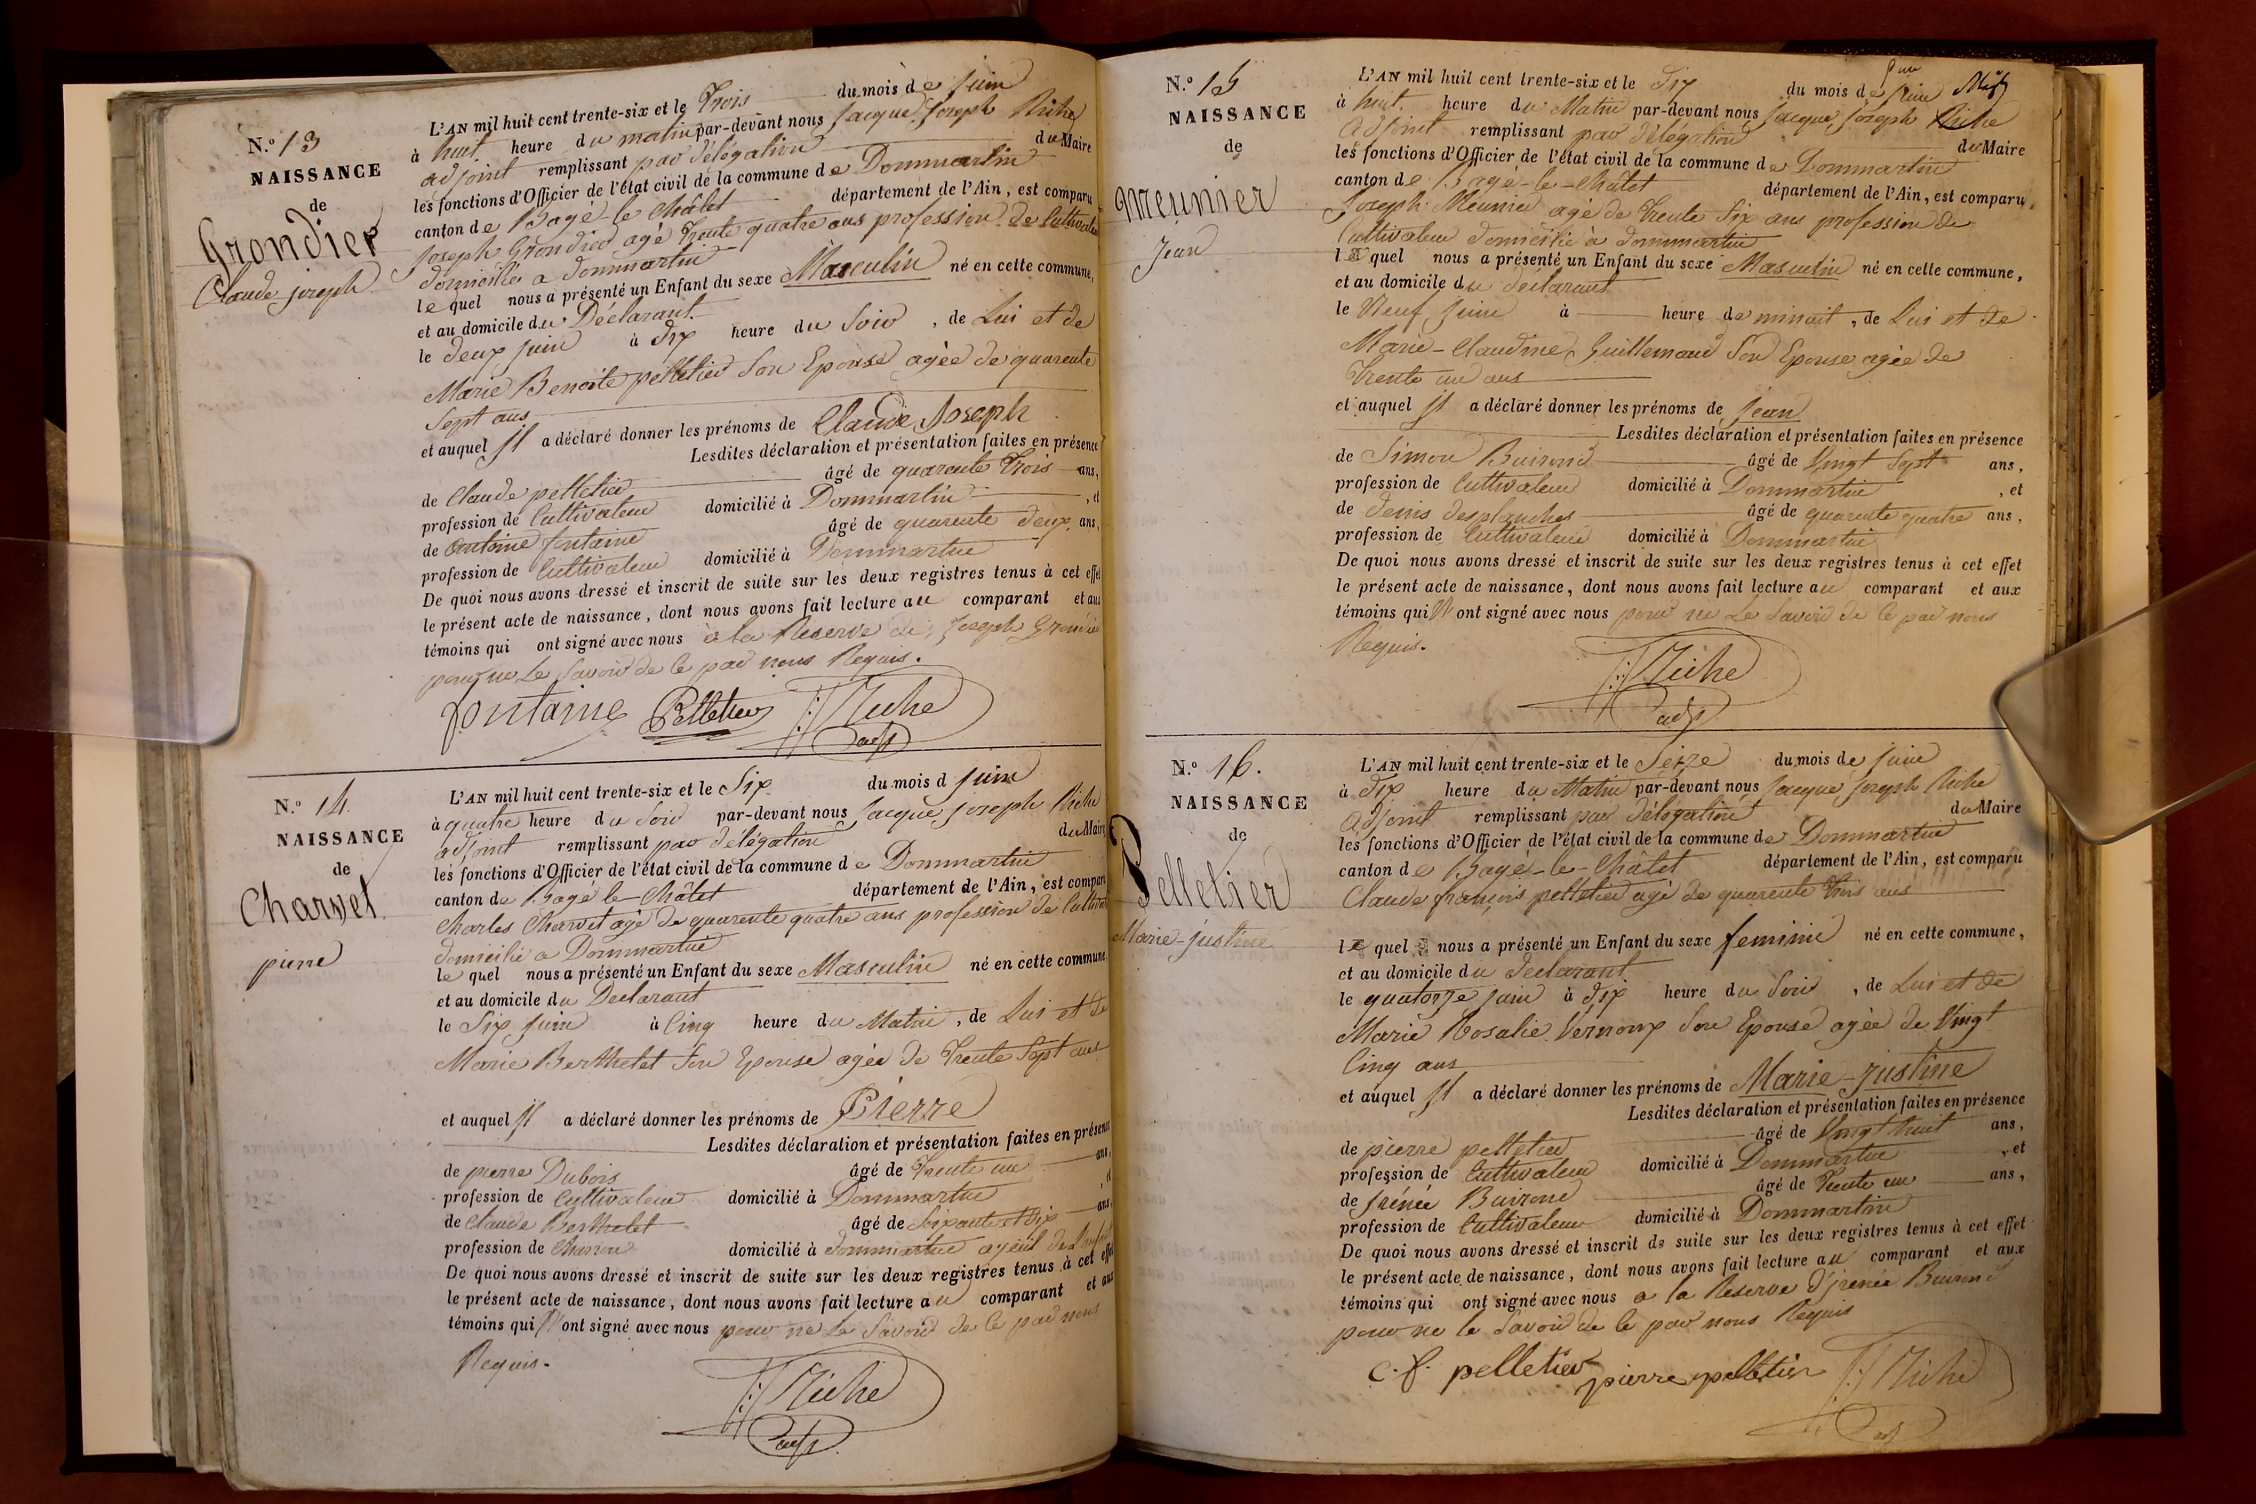 N.º 13
NAISSANCE
de
Grondier
Claude joseph
L'AN mil huit cent trente-six et le Trois du mois de juin
à huit heure du matin par-devant nous Jacque Joseph Riche
adjoint remplissant par délégation du Maire
les fonctions d'Officier de l'état civil de la commune de Dommartin
canton de Bagé le Châtel département de l'Ain, est comparu
Joseph Grondier agé trente quatre ans profession de Cultivateur
domicilié a dommartin
lequel nous a présenté un Enfant du sexe Masculin né en cette commune,
et au domicile du Déclarant
le deux juin à dix heure du Soir, de Lui et de
Marie Benoite pelletier Son Epouse agée de quarente
Sept ans
et auquel Il a déclaré donner les prénoms de Claude Joseph
Lesdites déclaration et présentation faites en présence
de Claude pelletier âgé de quarente Trois ans,
profession de Cultivateur domicilié à Dommartin, et
de antoine fontaine âgé de quarente deux ans,
profession de Cultivateur domicilié à Dommartin
De quoi nous avons dressé et inscrit de suite sur les deux registres tenus à cet effet
le présent acte de naissance, dont nous avons fait lecture au comparant et aux
témoins qui ont signé avec nous à la Reserve de Joseph Grondier
pour ne Le Savoir de ce par nous Requis.
fontaine Pelletier JJ Riche
adjt
N.º 14.
NAISSANCE
de
Charvet
pierre
L'AN mil huit cent trente-six et le Six du mois d juin
à quatre heure du Soir par-devant nous Jacque Joseph Riche
adjoint remplissant par délégation du Maire
les fonctions d'Officier de l'état civil de la commune de Dommartin
canton de Bagé le Châtel département de l'Ain, est comparu
Charles Charvet agé de quarente quatre ans profession de Cultivat
domicilié a Dommartin
lequel nous a présenté un Enfant du sexe Masculin né en cette commune,
et au domicile du Declarant
le Six juin à Cinq heure du Matin, de Lui et de
Marie Berthelet Son Epouse agée de Trente Sept ans
et auquel Il a déclaré donner les prénoms de Pierre
Lesdites déclaration et présentation faites en présence
de pierre Dubois âgé de Trente un ans,
profession de Cultivateur domicilié à Dommartin, et
de Claude Berthelet âgé de Soixante et Dix ans,
profession de Charron domicilié à dommartin ayeul de l'enfant
De quoi nous avons dressé et inscrit de suite sur les deux registres tenus à cet effet
le présent acte de naissance, dont nous avons fait lecture au comparant et aux
témoins qui N'ont signé avec nous pour ne Le Savoir de ce par nous
Requis.
JJ Riche
adjt
N.º 15
NAISSANCE
de
meunier
Jean
L'AN mil huit cent trente-six et le Dix du mois de juin
à huit heure du Matin par-devant nous Jacque Joseph Riche
adjoint remplissant par délégation du Maire
les fonctions d'Officier de l'état civil de la commune de Dommartin
canton de Bagé-le-Châtel département de l'Ain, est comparu
Joseph Meunier agé de Trente Six ans profession de
Cultivateur domicilié à dommartin
lequel nous a présenté un Enfant du sexe Masculin né en cette commune,
et au domicile du déclarant
le Neuf Juin à heure de minuit, de Lui et de
Marie-Claudine Guillemaud Son Epouse agée de
Trente un ans
et auquel Il a déclaré donner les prénoms de Jean
Lesdites déclaration et présentation faites en présence
de Simon Buirond âgé de Vingt Sept ans,
profession de Cultivateur domicilié à Dommartin, et
de denis desplanches âgé de quarente quatre ans,
profession de Cultivateur domicilié à Dommartin
De quoi nous avons dressé et inscrit de suite sur les deux registres tenus à cet effet
le présent acte de naissance, dont nous avons fait lecture au comparant et aux
témoins qui N'ont signé avec nous pour ne Le Savoir de ce par nous
Requis.
JJ Riche
adjt
N.º 16.
NAISSANCE
de
Pelletier
Marie-justine
L'AN mil huit cent trente-six et le Seize du mois de juin
à Dix heure du Matin par-devant nous Jacque Joseph Riche
adjoint remplissant par délégation du Maire
les fonctions d'Officier de l'état civil de la commune de Dommartin
canton de Bagé-le-Châtel département de l'Ain, est comparu
Claude françois pelletier agé de quarente Trois ans
lequel nous a présenté un Enfant du sexe feminin né en cette commune,
et au domicile du declarant
le quatorze juin à dix heure du Soir, de Lui et de
Marie Rosalie Vernoux Son Epouse agée de Vingt
Cinq ans
et auquel Il a déclaré donner les prénoms de Marie-justine
Lesdites déclaration et présentation faites en présence
de pierre pelletier âgé de Vingt huit ans,
profession de Cultivateur domicilié à Dommartin, et
de frénée Buirond âgé de Trente un ans,
profession de Cultivateur domicilié à Dommartin
De quoi nous avons dressé et inscrit de suite sur les deux registres tenus à cet effet
le présent acte de naissance, dont nous avons fait lecture au comparant et aux
témoins qui ont signé avec nous a la Reserve d'frenée Buirond
pour ne le Savoir de ce par nous Requis
c. f. pelletier pierre pelletier JJ Riche
adjt